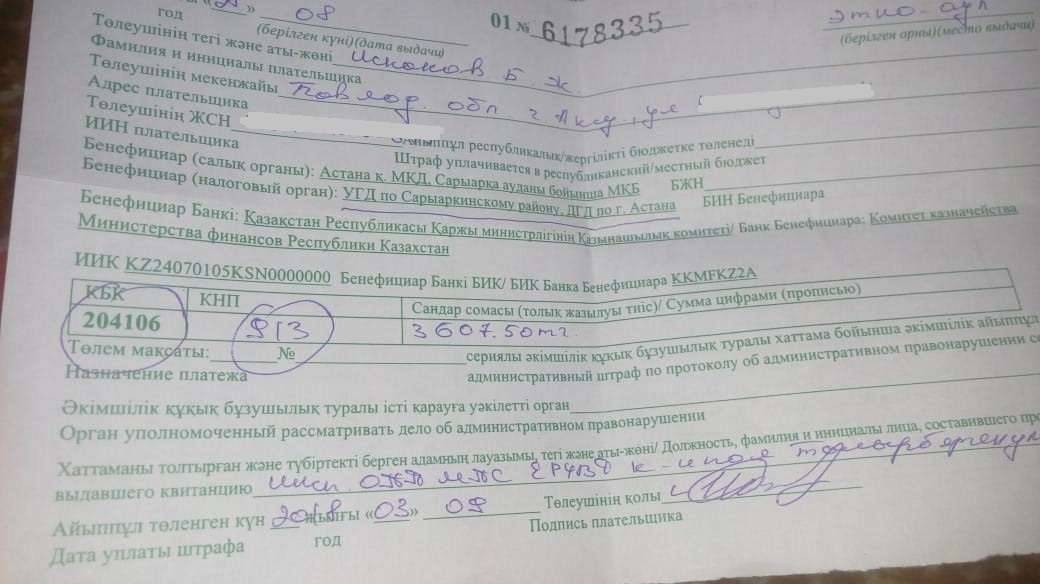 «29» 08
год (берілген күні)(дата выдачи)
01 № 6178335
этно-аул
(берілген орны)(место выдачи)
Төлеушінің тегі және аты-жөні Искаков Б. Ж
Фамилия и инициалы плательщика
Төлеушінің мекенжайы Павлод. обл г Аксу, ул
Адрес плательщика
Төлеушінің ЖСН
ИИН плательщика
Айыппұл республикалық/жергілікті бюджетке төленеді
Штраф уплачивается в республиканский/местный бюджет
Бенефициар (салық органы): Астана қ. МКД, Сарыарқа ауданы бойынша МКБ БЖН
Бенефициар (налоговый орган): УГД по Сарыаркинскому району, ДГД по г. Астана БИН Бенефициара
Бенефициар Банкі: Қазақстан Республикасы Қаржы министрлігінің Қазынашылық комитеті/ Банк Бенефициара: Комитет казначейства
Министерства финансов Республики Казахстан
ИИК KZ24070105KSN0000000 Бенефициар Банкі БИК/ БИК Банка Бенефициара KKMFKZ2A
КБК КНП Сандар сомасы (толық жазылуы тиіс)/ Сумма цифрами (прописью)
204106 913 3607.50тг
Төлем мақсаты: № сериялы әкімшілік құқық бұзушылық туралы хаттама бойынша әкімшілік айыппұл
Назначение платежа административный штраф по протоколу об административном правонарушении се
Әкімшілік құқық бұзушылық туралы істі қарауға уәкілетті орган
Орган уполномоченный рассматривать дело об административном правонарушении
Хаттаманы толтырған және түбіртекті берген адамның лауазымы, тегі және аты-жөні/ Должность, фамилия и инициалы лица, составившего про
выдавшего квитанцию
Айыппұл төленген күн 2018 жылғы «03» 09 Төлеушінің қолы
Дата уплаты штрафа год Подпись плательщика